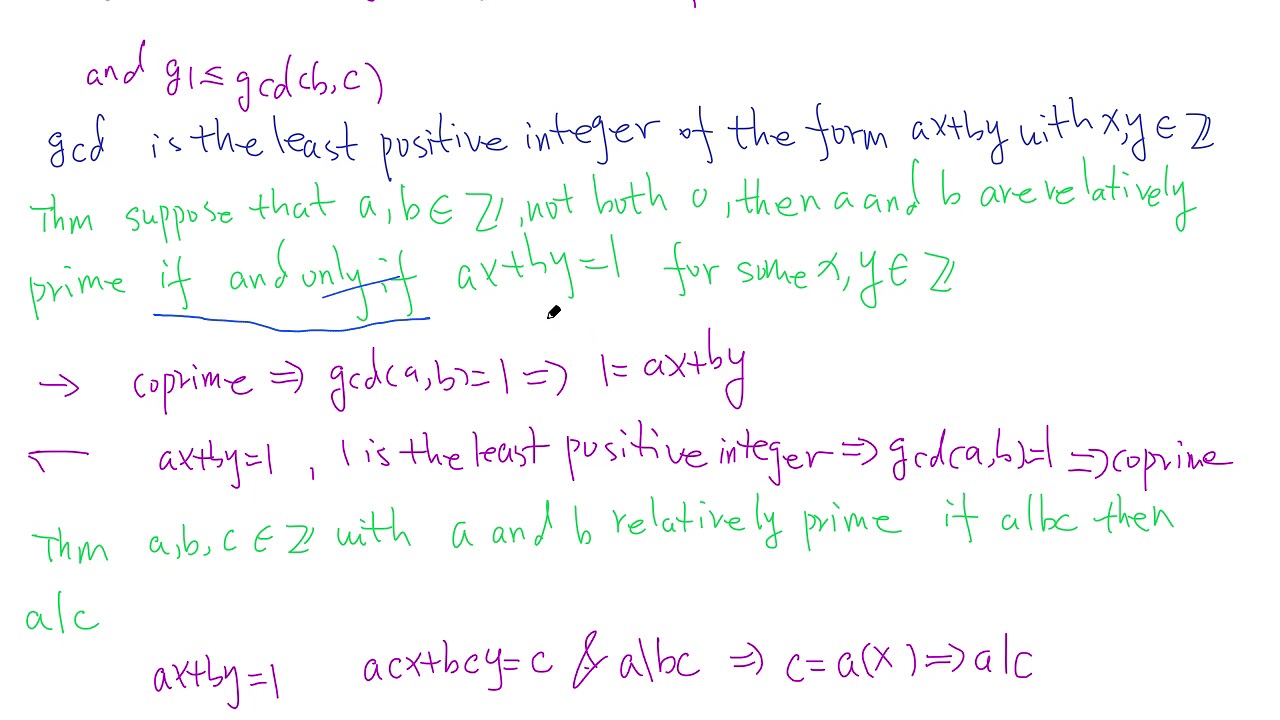 and g1 ≤ gcd(b, c)
gcd is the least positive integer of the form ax+by with x,y ∈ ℤ
Thm suppose that a, b ∈ ℤ, not both 0, then a and b are relatively
prime if and only if ax+by=1 for some x, y ∈ ℤ
→ coprime ⇒ gcd(a,b)=1 ⇒ 1=ax+by
← ax+by=1, 1 is the least positive integer ⇒ gcd(a,b)=1 ⇒ coprime
Thm a,b,c ∈ ℤ with a and b relatively prime if a|bc then
a|c
ax+by=1 acx+bcy=c & a|bc ⇒ c=a(x) ⇒ a|c